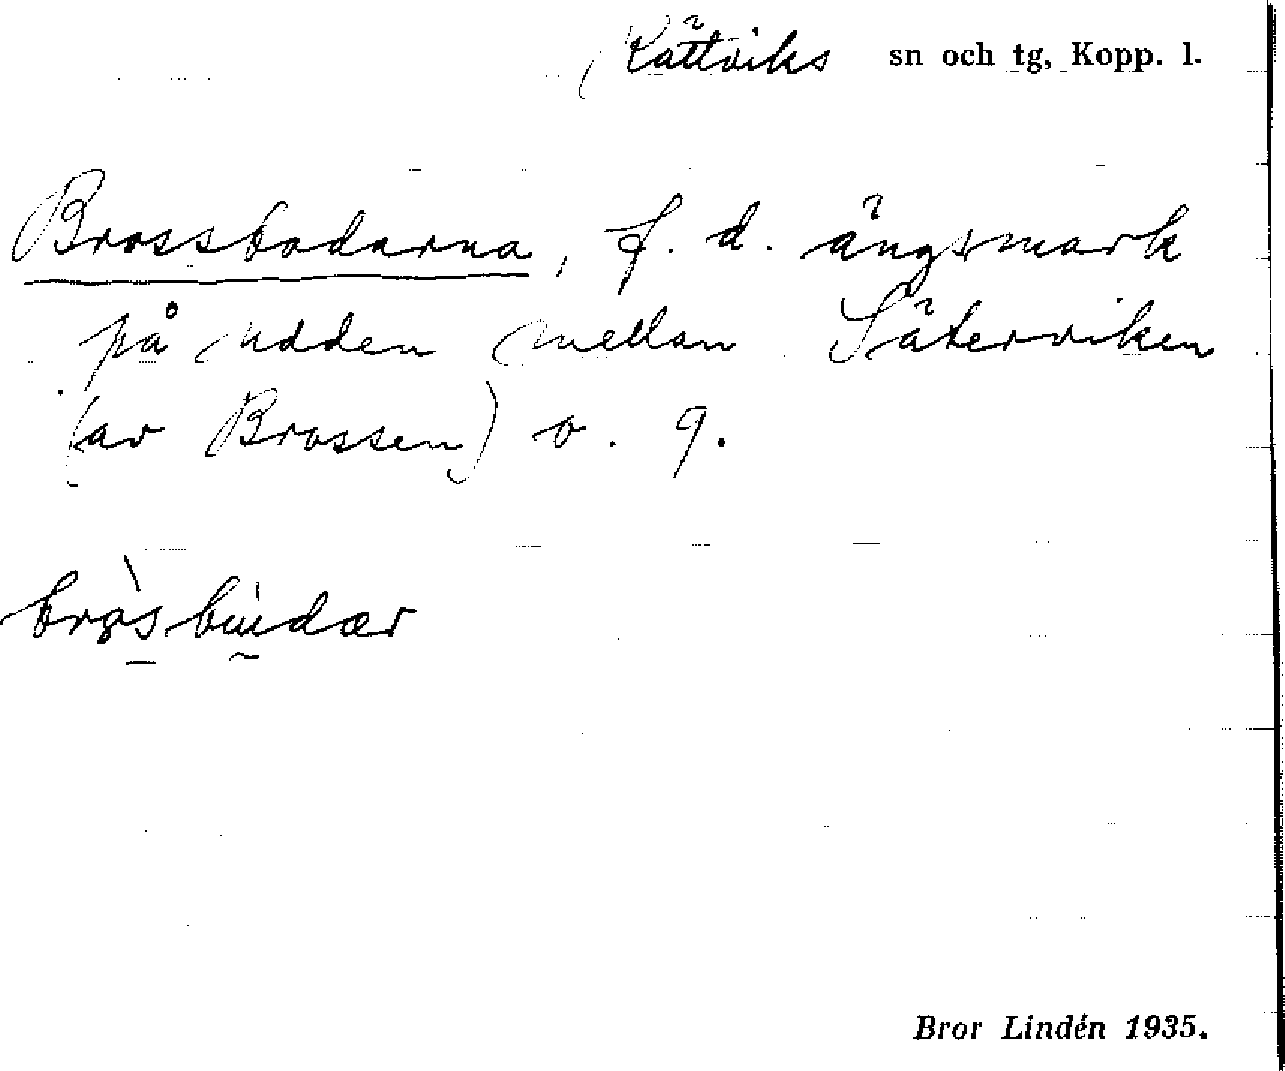 Rättviks sn och tg, Kopp. l.
Brossbodarna, f. d. ängsmark
på udden mellan Säterviken
(av Brossen) o. 9.
Bror Lindén 1935.